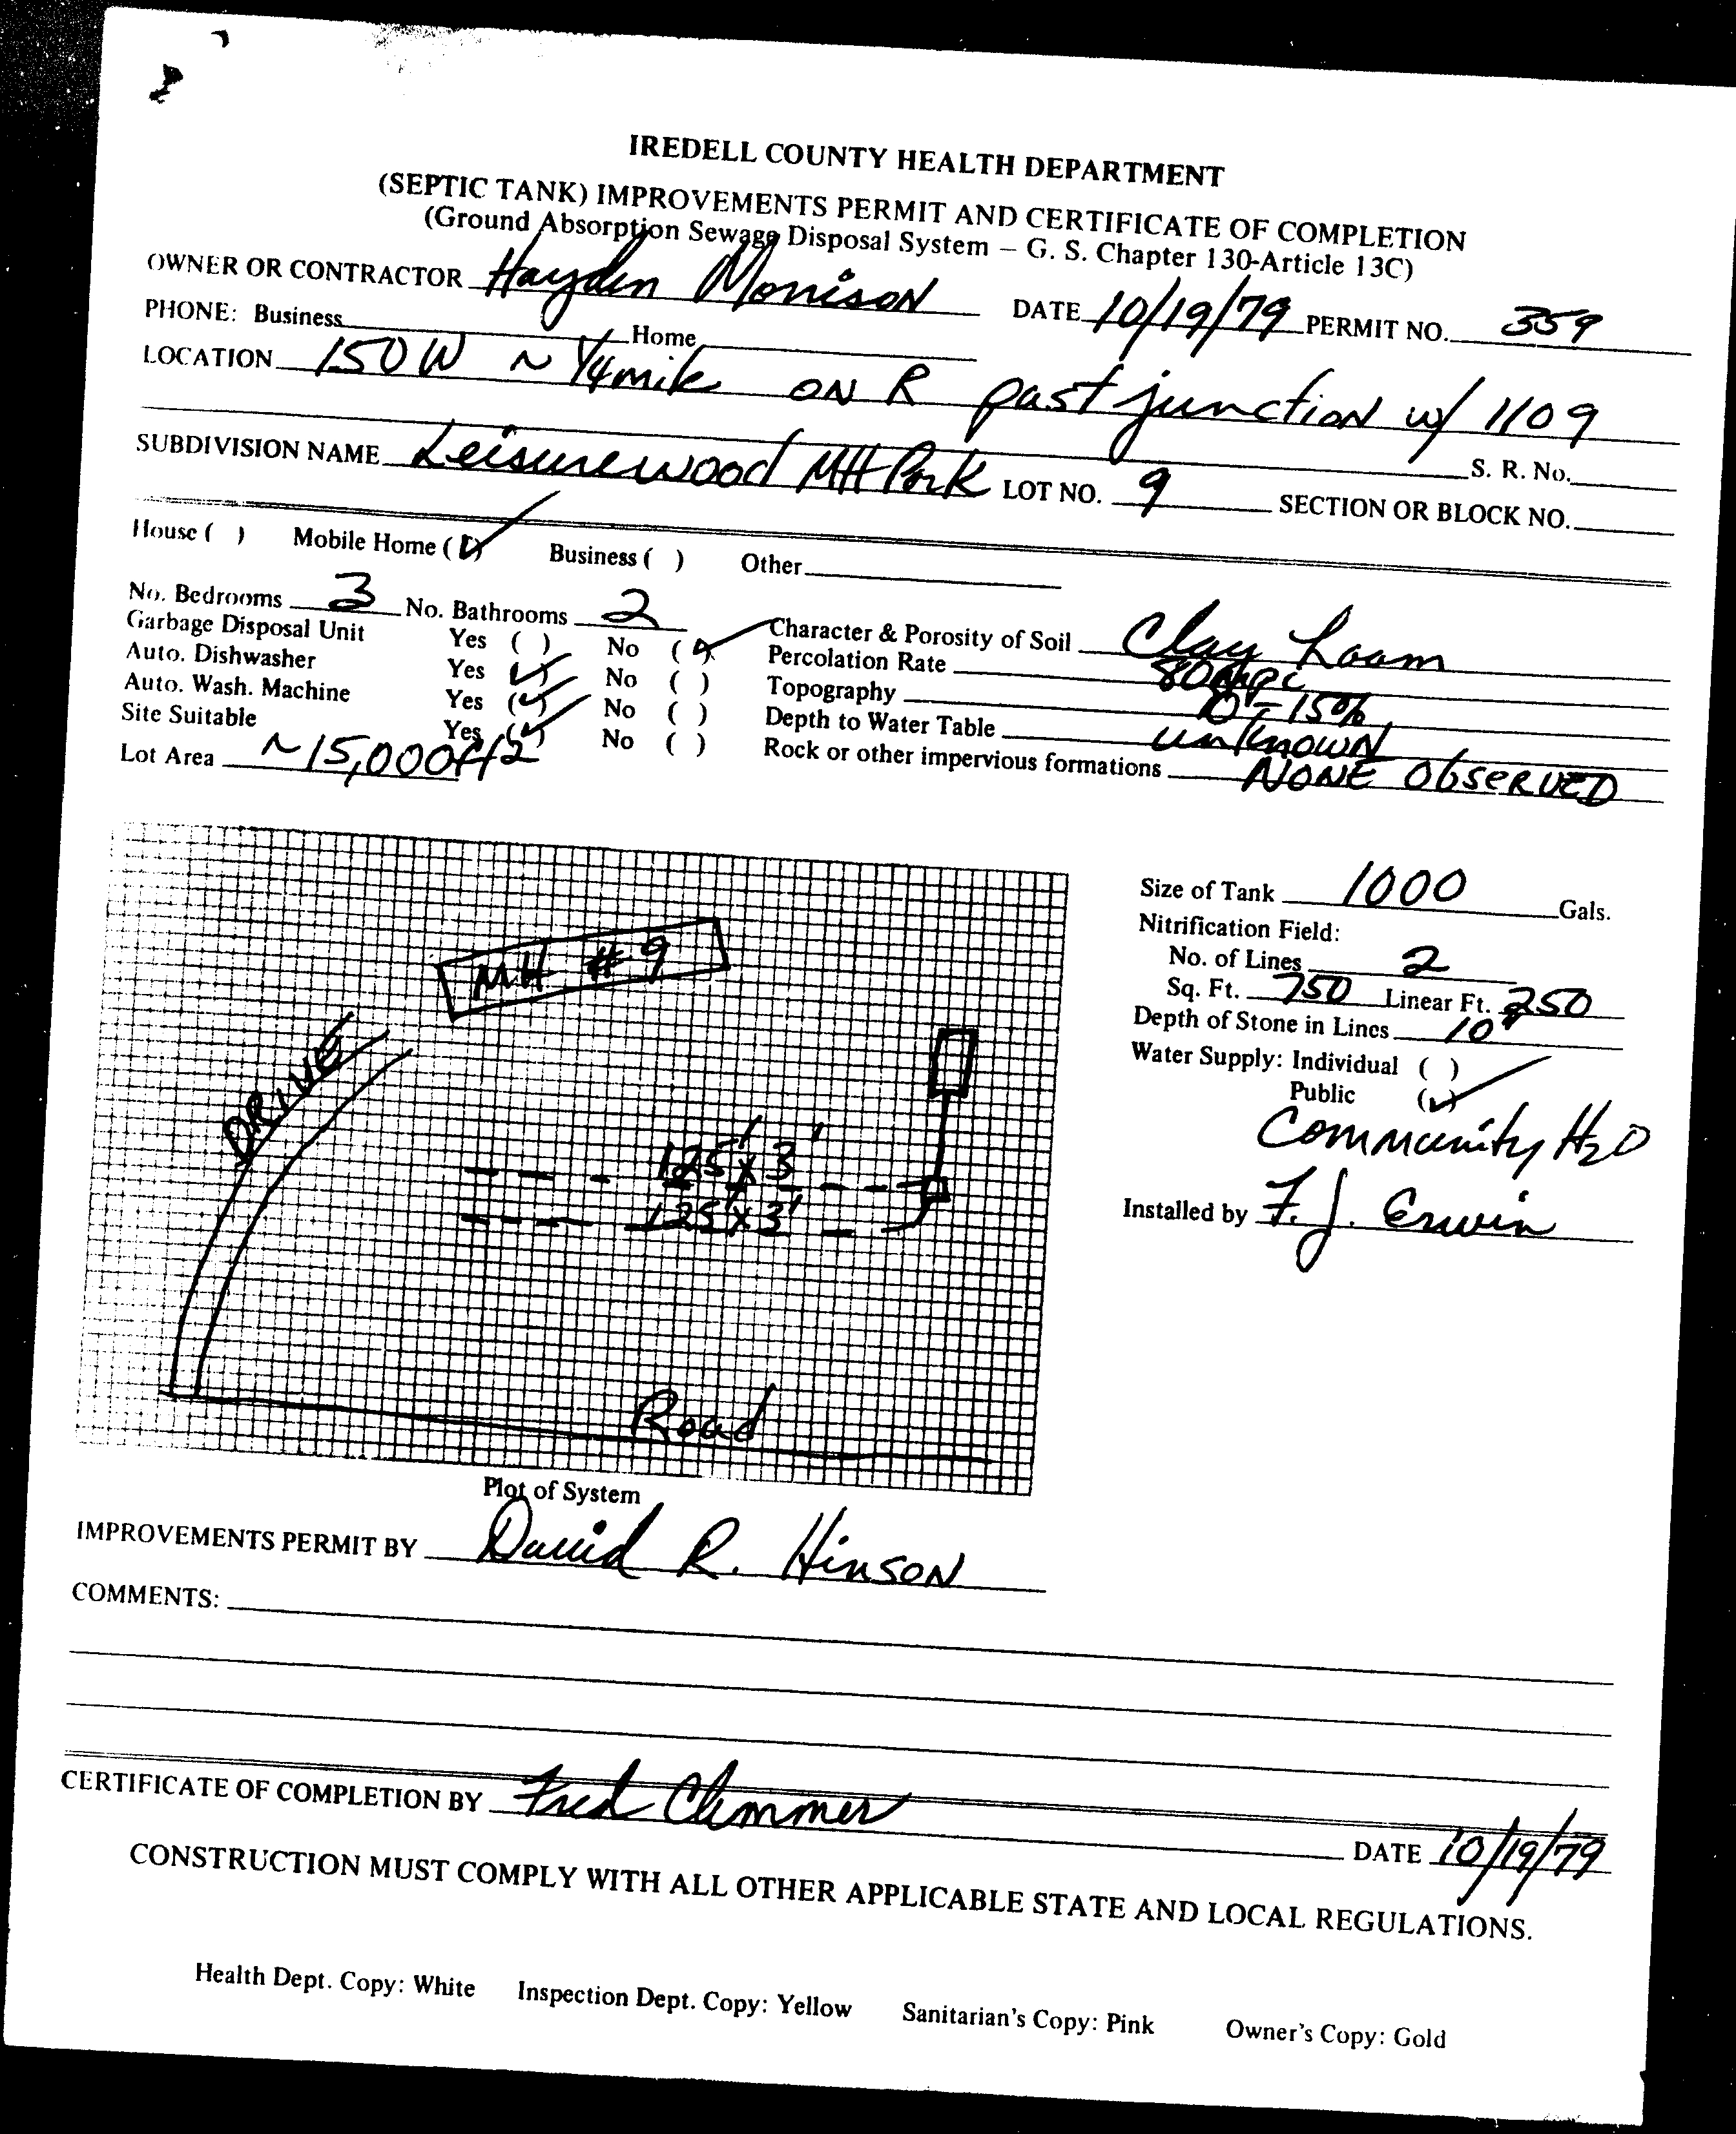 IREDELL COUNTY HEALTH DEPARTMENT
(SEPTIC TANK) IMPROVEMENTS PERMIT AND CERTIFICATE OF COMPLETION
(Ground Absorption Sewage Disposal System – G. S. Chapter 130-Article 13C)
OWNER OR CONTRACTOR Hayden Morrison DATE 10/19/79 PERMIT NO. 359
PHONE: Business Home
LOCATION 150 W ~ 1/4 mile ON R past junction w/ 1109
S. R. No.
SUBDIVISION NAME Leisurewood MH Park LOT NO. 9 SECTION OR BLOCK NO.
House ( ) Mobile Home (✓) Business ( ) Other
No. Bedrooms 3 No. Bathrooms 2
Garbage Disposal Unit Yes ( ) No (✓) Character & Porosity of Soil Clay Loam
Auto. Dishwasher Yes (✓) No ( ) Percolation Rate
Auto. Wash. Machine Yes (✓) No ( ) Topography 10-15%
Site Suitable Yes (✓) No ( ) Depth to Water Table unknown
Lot Area ~15,000ft2 Rock or other impervious formations NONE Observed
MH #9
DRIVE
125' x 3'
125' x 3'
Road
Plot of System
Size of Tank 1000 Gals.
Nitrification Field:
No. of Lines 2
Sq. Ft. 750 Linear Ft. 250
Depth of Stone in Lines 10"
Water Supply: Individual ( )
Public (✓)
Community H2O
Installed by F. J. Erwin
IMPROVEMENTS PERMIT BY David R. Hinson
COMMENTS:
CERTIFICATE OF COMPLETION BY Fred Clemmer
DATE 10/19/79
CONSTRUCTION MUST COMPLY WITH ALL OTHER APPLICABLE STATE AND LOCAL REGULATIONS.
Health Dept. Copy: White Inspection Dept. Copy: Yellow Sanitarian's Copy: Pink Owner's Copy: Gold